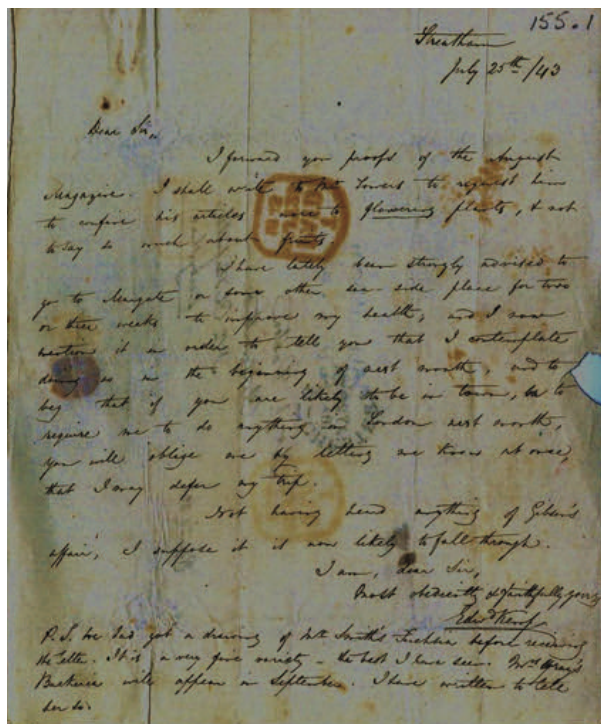 155.1
Streatham
July 25th /43
Dear Sir,
I forward you proofs of the August
Magazine. I shall write to Mr Towers to request him
to confine his articles more to flowering plants, & not
to say so much about fruits.
I have lately been strongly advised to
go to Margate or some other sea-side place for two
or three weeks to improve my health, and I now
mention it in order to tell you that I contemplate
doing so in the beginning of next month, and to
beg that if you are likely to be in town, or to
require me to do anything in London next month,
you will oblige me by letting me know at once,
that I may defer my trip.
Not having heard anything of Gibson's
affair, I suppose it is now likely to fall through.
I am, Dear Sir,
Most obediently & faithfully yours
Edwd Kemp
P.S. We had got a drawing of Mr Smith's Fuchsia before receiving
the letter. It is a very fine variety - the best I have seen. Mrs Wray's
will appear in September. I have written to tell
her so.